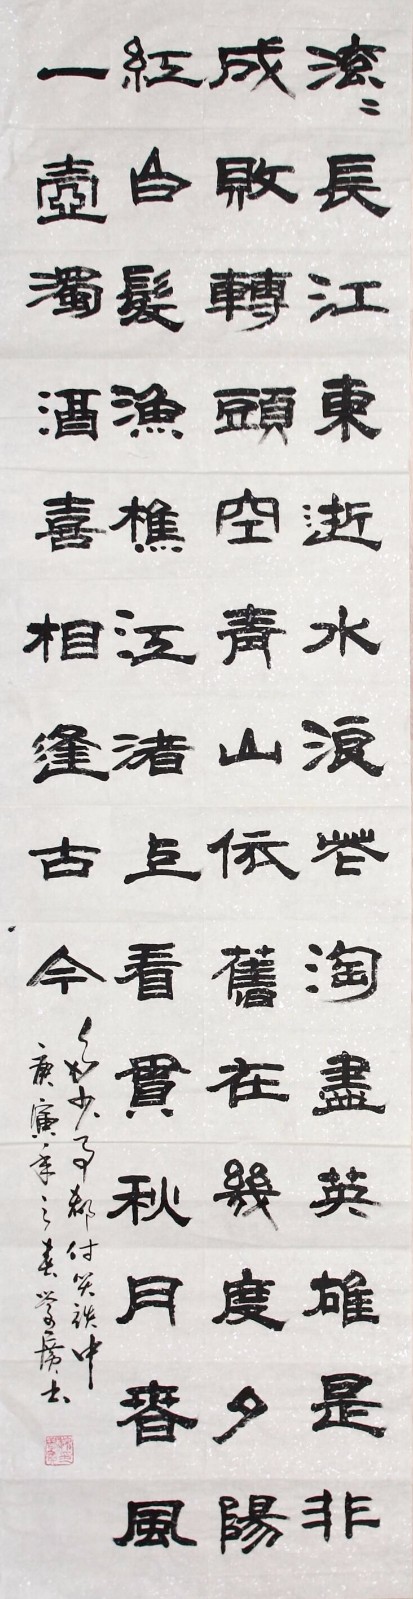 滾〻長江東逝水浪花淘盡英雄是非
成敗轉頭空青山依舊在幾度夕陽
紅白髮漁樵江渚上看貫秋月春風
一壺濁酒喜相逢古今
多少事都付笑談中
庚寅年之春書